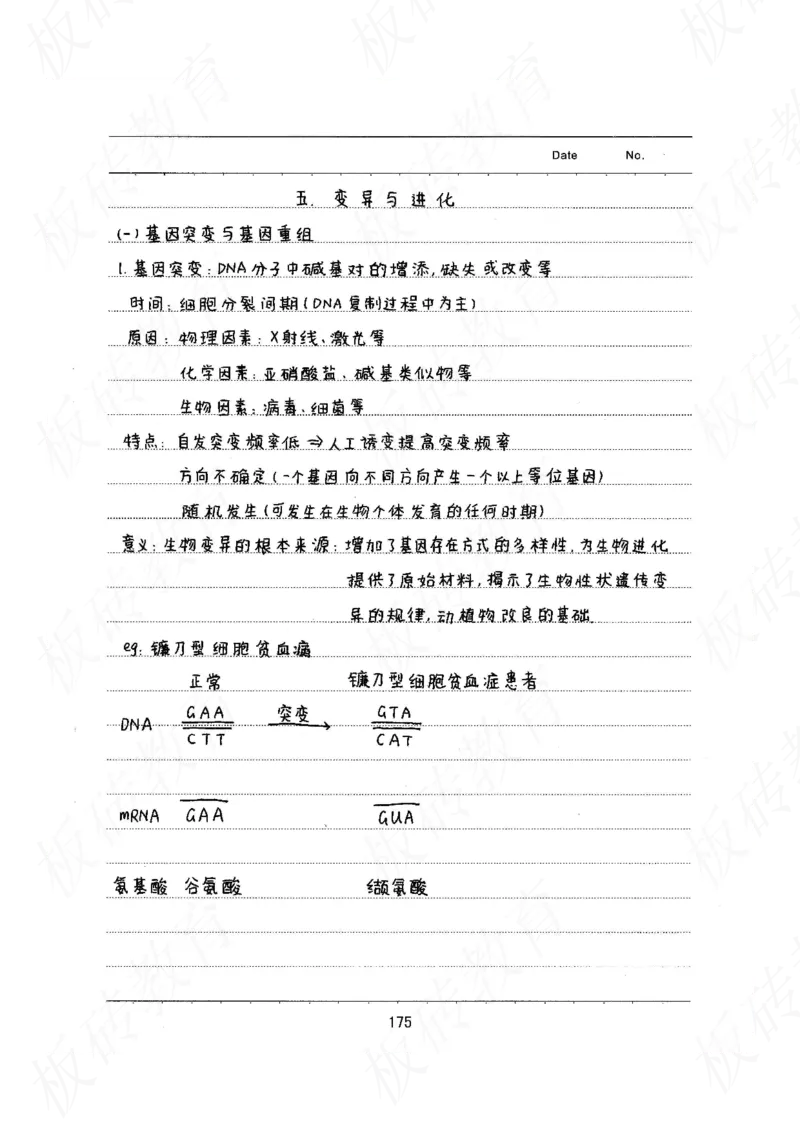 Date No.
五. 变异与进化
(一)基因突变与基因重组
1. 基因突变:DNA分子中碱基对的增添,缺失或改变等
时间:细胞分裂间期(DNA复制过程中为主)
原因:物理因素:X射线、激光等
化学因素:亚硝酸盐、碱基类似物等
生物因素:病毒、细菌等
特点:自发突变频率低⇒人工诱变提高突变频率
方向不确定(一个基因向不同方向产生一个以上等位基因)
随机发生(可发生在生物个体发育的任何时期)
意义:生物变异的根本来源:增加了基因存在方式的多样性,为生物进化
提供了原始材料,揭示了生物性状遗传变
异的规律,动植物改良的基础.
eg: 镰刀型细胞贫血病
正常 镰刀型细胞贫血症患者
DNA GAA 突变 GTA
CTT CAT
mRNA GAA GUA
氨基酸 谷氨酸 缬氨酸
175
板砖教育